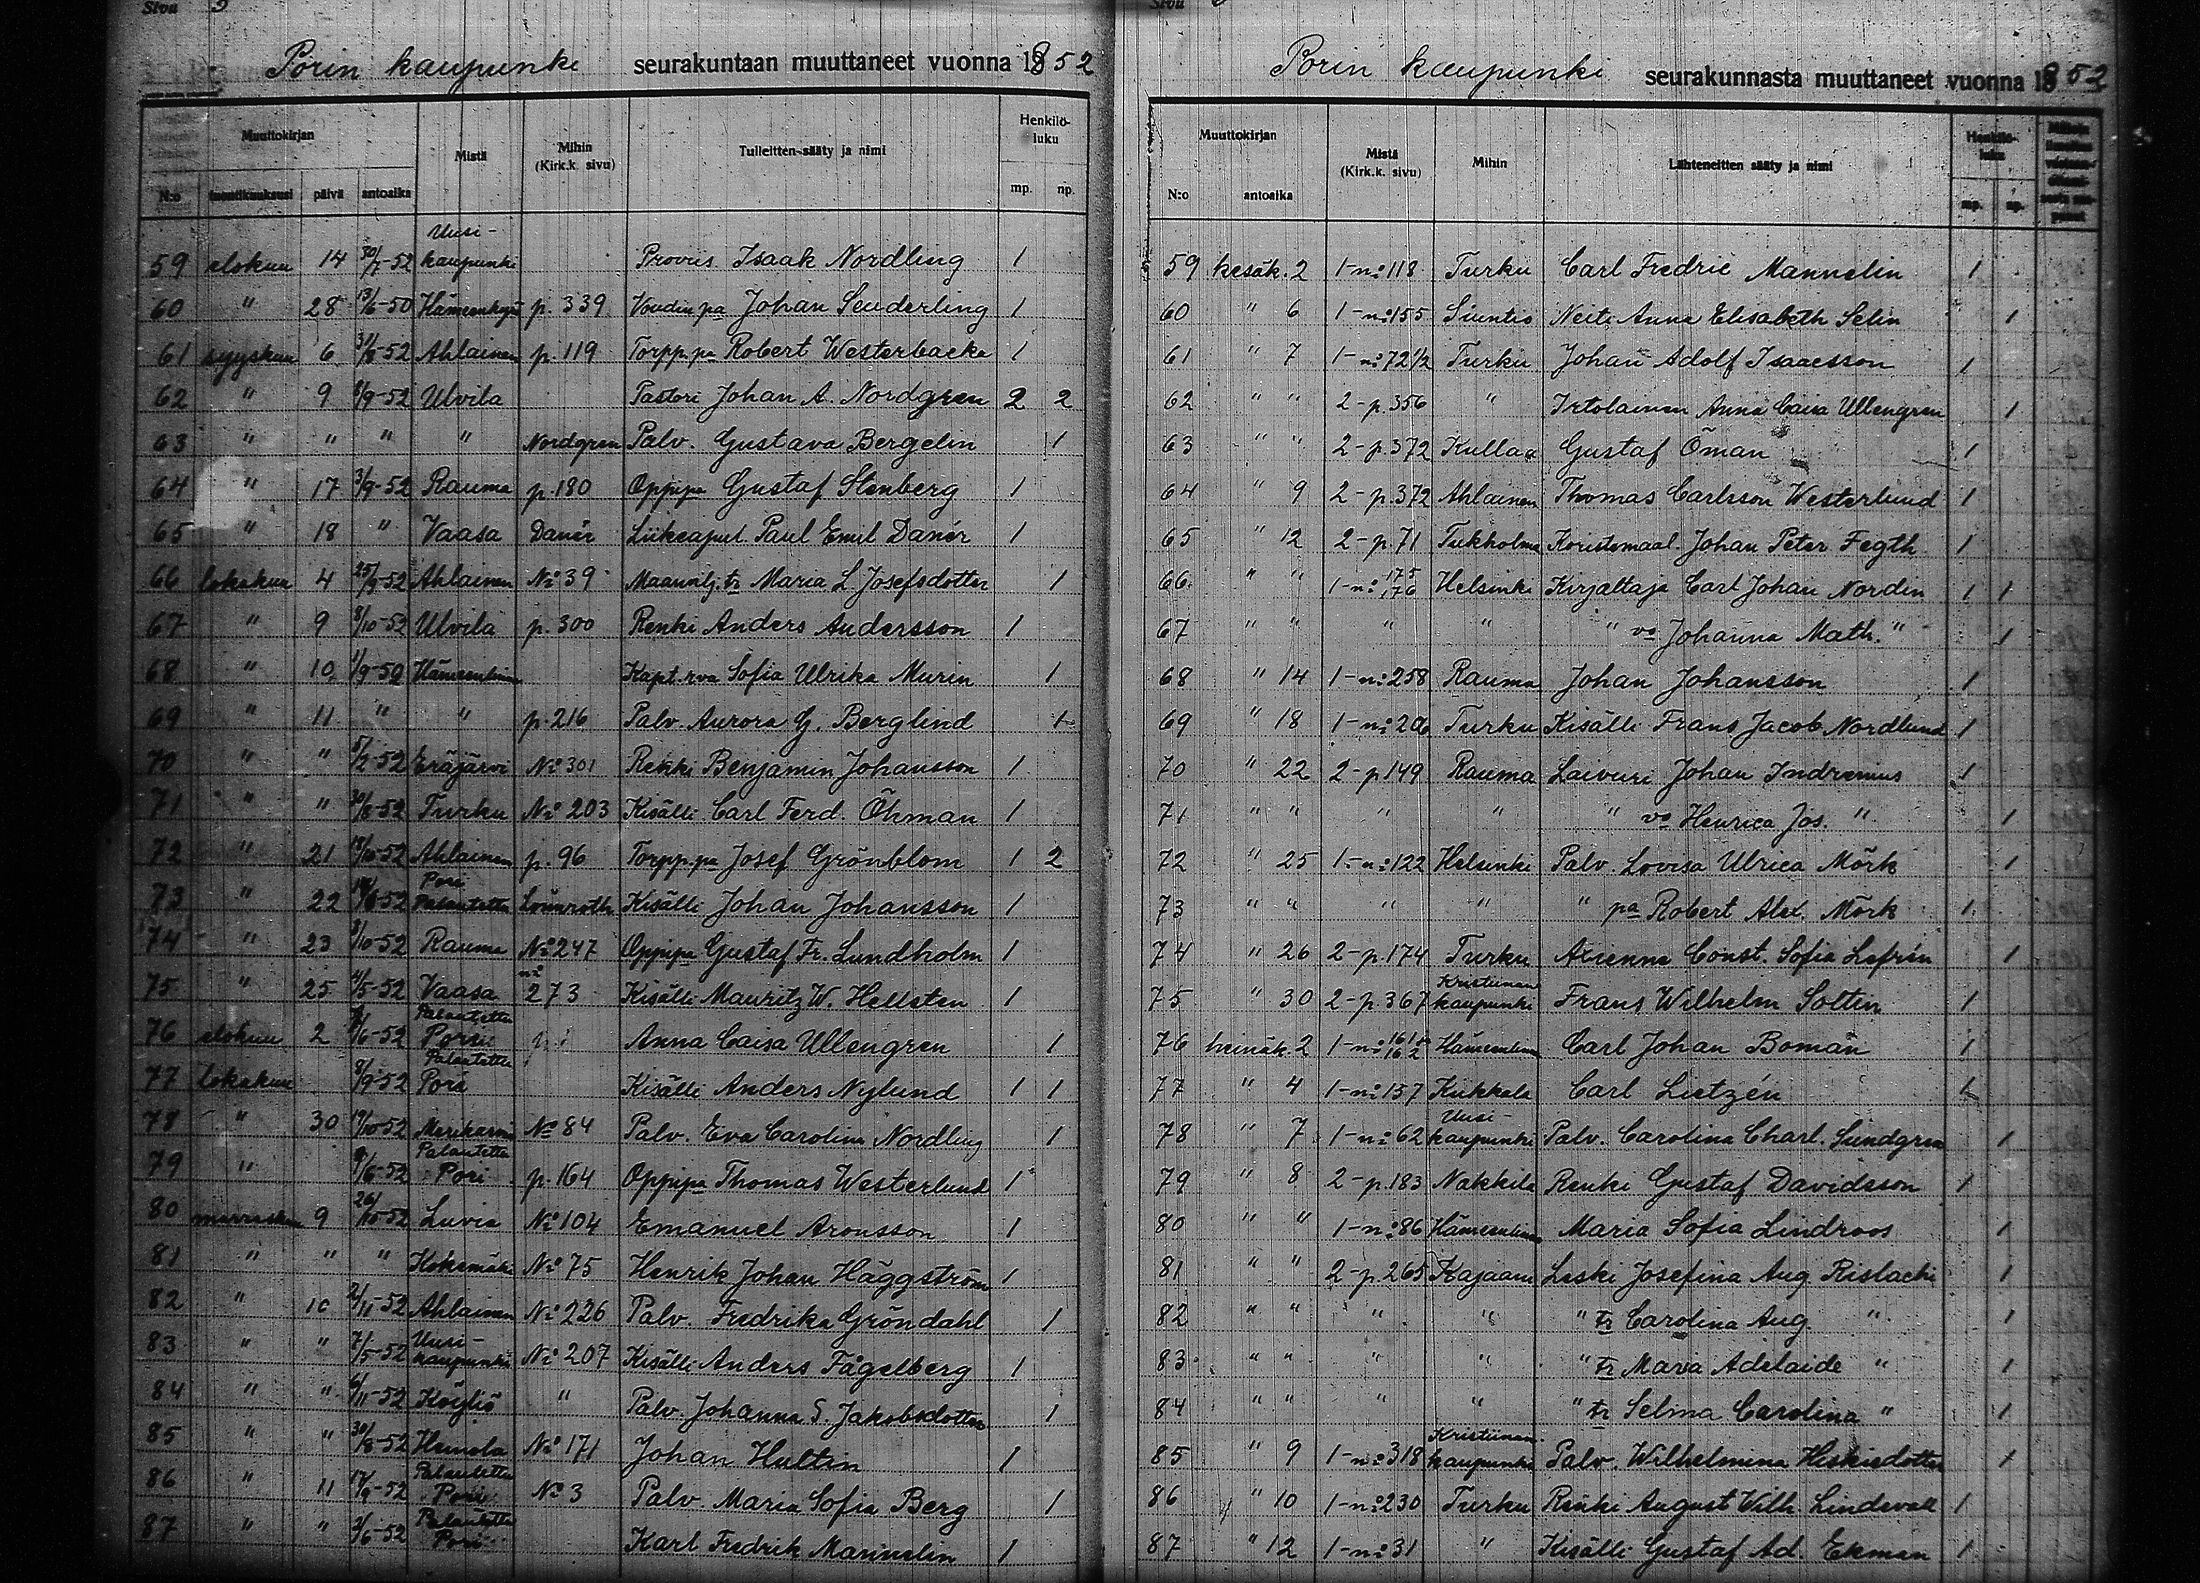 Sivu
Porin kaupunki seurakuntaan muuttaneet vuonna 1852
Muuttokirjan Mistä Mihin (Kirk.k. sivu) Tulleitten sääty ja nimi Henkilö-luku
N:o tuontikuukausi päivä antoaika mp. np.
59 elokuu 14 30/7-52 Uusi-kaupunki Provis Isaak Nordling 1
60 " 28 13/6-50 Hämeenkyrö p. 339 Voudin pa Johan Seuderling 1
61 syyskuu 6 31/8-52 Ahlainen p. 119 Torpp.pa Robert Westerbacka 1
62 " 9 8/9-52 Ulvila Pastori Johan A. Nordgren 2 2
63 " " " " Nordgren Palv. Gustava Bergelin 1
64 " 17 3/9-52 Rauma p. 180 Oppipa Gustaf Stenberg 1
65 " 18 " Vaasa Danér Liikeapul. Paul Emil Danér 1
66 lokakuu 4 25/9-52 Ahlainen No 39 Maanvilj. tr Maria L Josefsdotter 1
67 " 9 8/10-52 Ulvila p. 300 Renki Anders Andersson 1
68 " 10 1/9-50 Hämeenlinna Kapt. rva Sofia Ulrika Murin 1
69 " 11 " " p. 216 Palv. Aurora G. Berglind 1
70 " " 5/2-52 Eräjärvi No 301 Renki Benjamin Johansson 1
71 " " 30/8-52 Turku No 203 Kisälli Carl Ferd. Öhman 1
72 " 21 18/10-52 Ahlainen p. 96 Torpp.pa Josef Grönblom 1 2
73 " 22 Pori Palautettu Lönnroth Kisälli Johan Johansson 1
74 " 23 3/10-52 Rauma No 247 Oppipa Gustaf Fr. Lundholm 1
75 " 25 4/5-52 Vaasa no 273 Kisälli Mauritz W. Hellsten 1
76 elokuu 2 Palautettu Porin Anna Caisa Ullengren 1
77 lokakuu 8/9-52 Palautettu Pori Kisälli Anders Nylund 1 1
78 " 30 19/10-52 Merikarvia No 84 Palv. Eva Carolina Nordling 1
79 " 9/6-52 Palautettu Pori p. 164 Oppipa Thomas Westerlund 1
80 marraskuu 9 26/10-52 Luvia No 104 Emanuel Aronsson 1
81 " " " Kokemäki No 75 Henrik Johan Häggström 1
82 " 10 2/11-52 Ahlainen No 226 Palv. Fredrika Gröndahl 1
83 " " 7/5-52 Uusi-kaupunki No 207 Kisälli Anders Fågelberg 1
84 " " 6/11-52 Köyliö " Palv. Johanna S. Jakobsdotter 1
85 " " 30/8-52 Heinola No 171 Johan Hultin 1
86 " 11 Palautettu Pori No 3 Palv. Maria Sofia Berg 1
87 " " 2/6-52 Palautettu Pori Karl Fredrik Mannelin 1
Sivu
Porin kaupunki seurakunnasta muuttaneet vuonna 1852
Muuttokirjan Mistä (Kirk.k. sivu) Mihin Lähteneitten sääty ja nimi Henkilö-luku
N:o antoaika mp. np.
59 kesäk. 2 1-no 118 Turku Carl Fredric Mannelin 1
60 " 6 1-no 155 Siuntio Neiti Anna Elisabeth Selin 1
61 " 7 1-no 72 1/2 Turku Johan Adolf Isaacsson 1
62 " " 2-p. 356 " Irtolainen Anna Caisa Ullengren 1
63 " " 2-p. 372 Kullaa Gustaf Öman 1
64 " 9 2-p. 372 Ahlainen Thomas Carlsson Westerlund 1
65 " 12 2-p. 71 Tukholma Koristemaal. Johan Peter Fegth 1
66 " " 1-no 175 176 Helsinki Kirjaltaja Carl Johan Nordin 1 1
67 " " " " " vo Johanna Math. " 1
68 " 14 1-no 258 Rauma Johan Johansson 1
69 " 18 1-no 206 Turku Kisälli Frans Jacob Nordlund 1
70 " 22 2-p 149 Rauma Laivuri Johan Indrenius 1
71 " " " " " vo Henrica Jos. " 1
72 " 25 1-no 122 Helsinki Palv. Lovisa Ulrica Mörk 1
73 " " " " " pa Robert Alex. Mörk 1
74 " 26 2-p. 174 Turku Axienne Const. Sofia Lefrén 1
75 " 30 2-p 367 Kristiinan kaupunki Frans Wilhelm Soltin 1
76 heinäk. 2 1-no 161 162 Hämeenlinna Carl Johan Boman 1
77 " 4 1-no 157 Kukkala Carl Lietzén 1
78 " 7 1-no 62 Uusi-kaupunki Palv. Carolina Charl. Sundgren 1
79 " 8 2-p. 183 Nakkila Renki Gustaf Davidsson 1
80 " " 1-no 86 Hämeenlinna Maria Sofia Lindroos 1
81 " " 2-p. 265 Kajaani Leski Josefina Aug. Rislachi 1
82 " " " " " tr Carolina Aug. " 1
83 " " " " " tr Maria Adelaide " 1
84 " " " " " tr Selma Carolina " 1
85 " 9 1-no 318 Kristiinan kaupunki Palv. Wilhelmina Heskisdotter 1
86 " 10 1-no 230 Turku Renki August Wilh. Lindevall 1
87 " 12 1-no 31 " Kisälli Gustaf Ad. Ekman 1